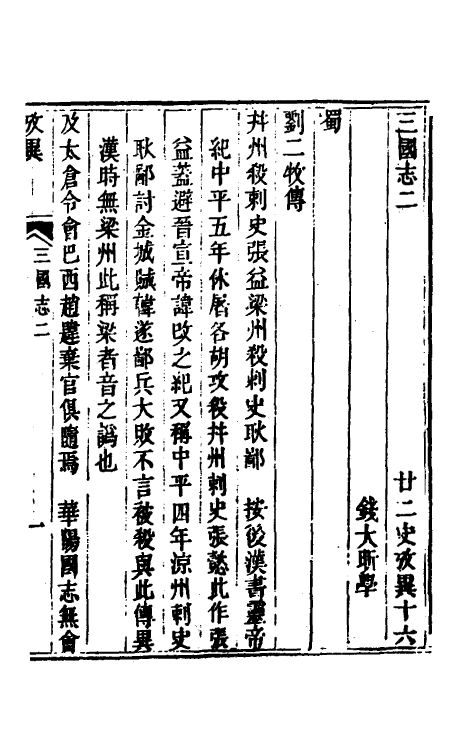 三國志二　廿二史攷異十六
錢大昕學
蜀
劉二牧傳
幷州殺刺史張益梁州殺刺史耿鄙　按後漢書靈帝
紀中平五年休屠各胡攻殺幷州刺史張懿此作張
益蓋避晉宣帝諱改之紀又稱中平四年涼州刺史
耿鄙討金城賊韓遂鄙兵大敗不言被殺與此傳異
漢時無梁州此稱梁者音之譌也
及太倉令會巴西趙韙棄官俱隨焉　華陽國志無會
攷異　三國志二　一